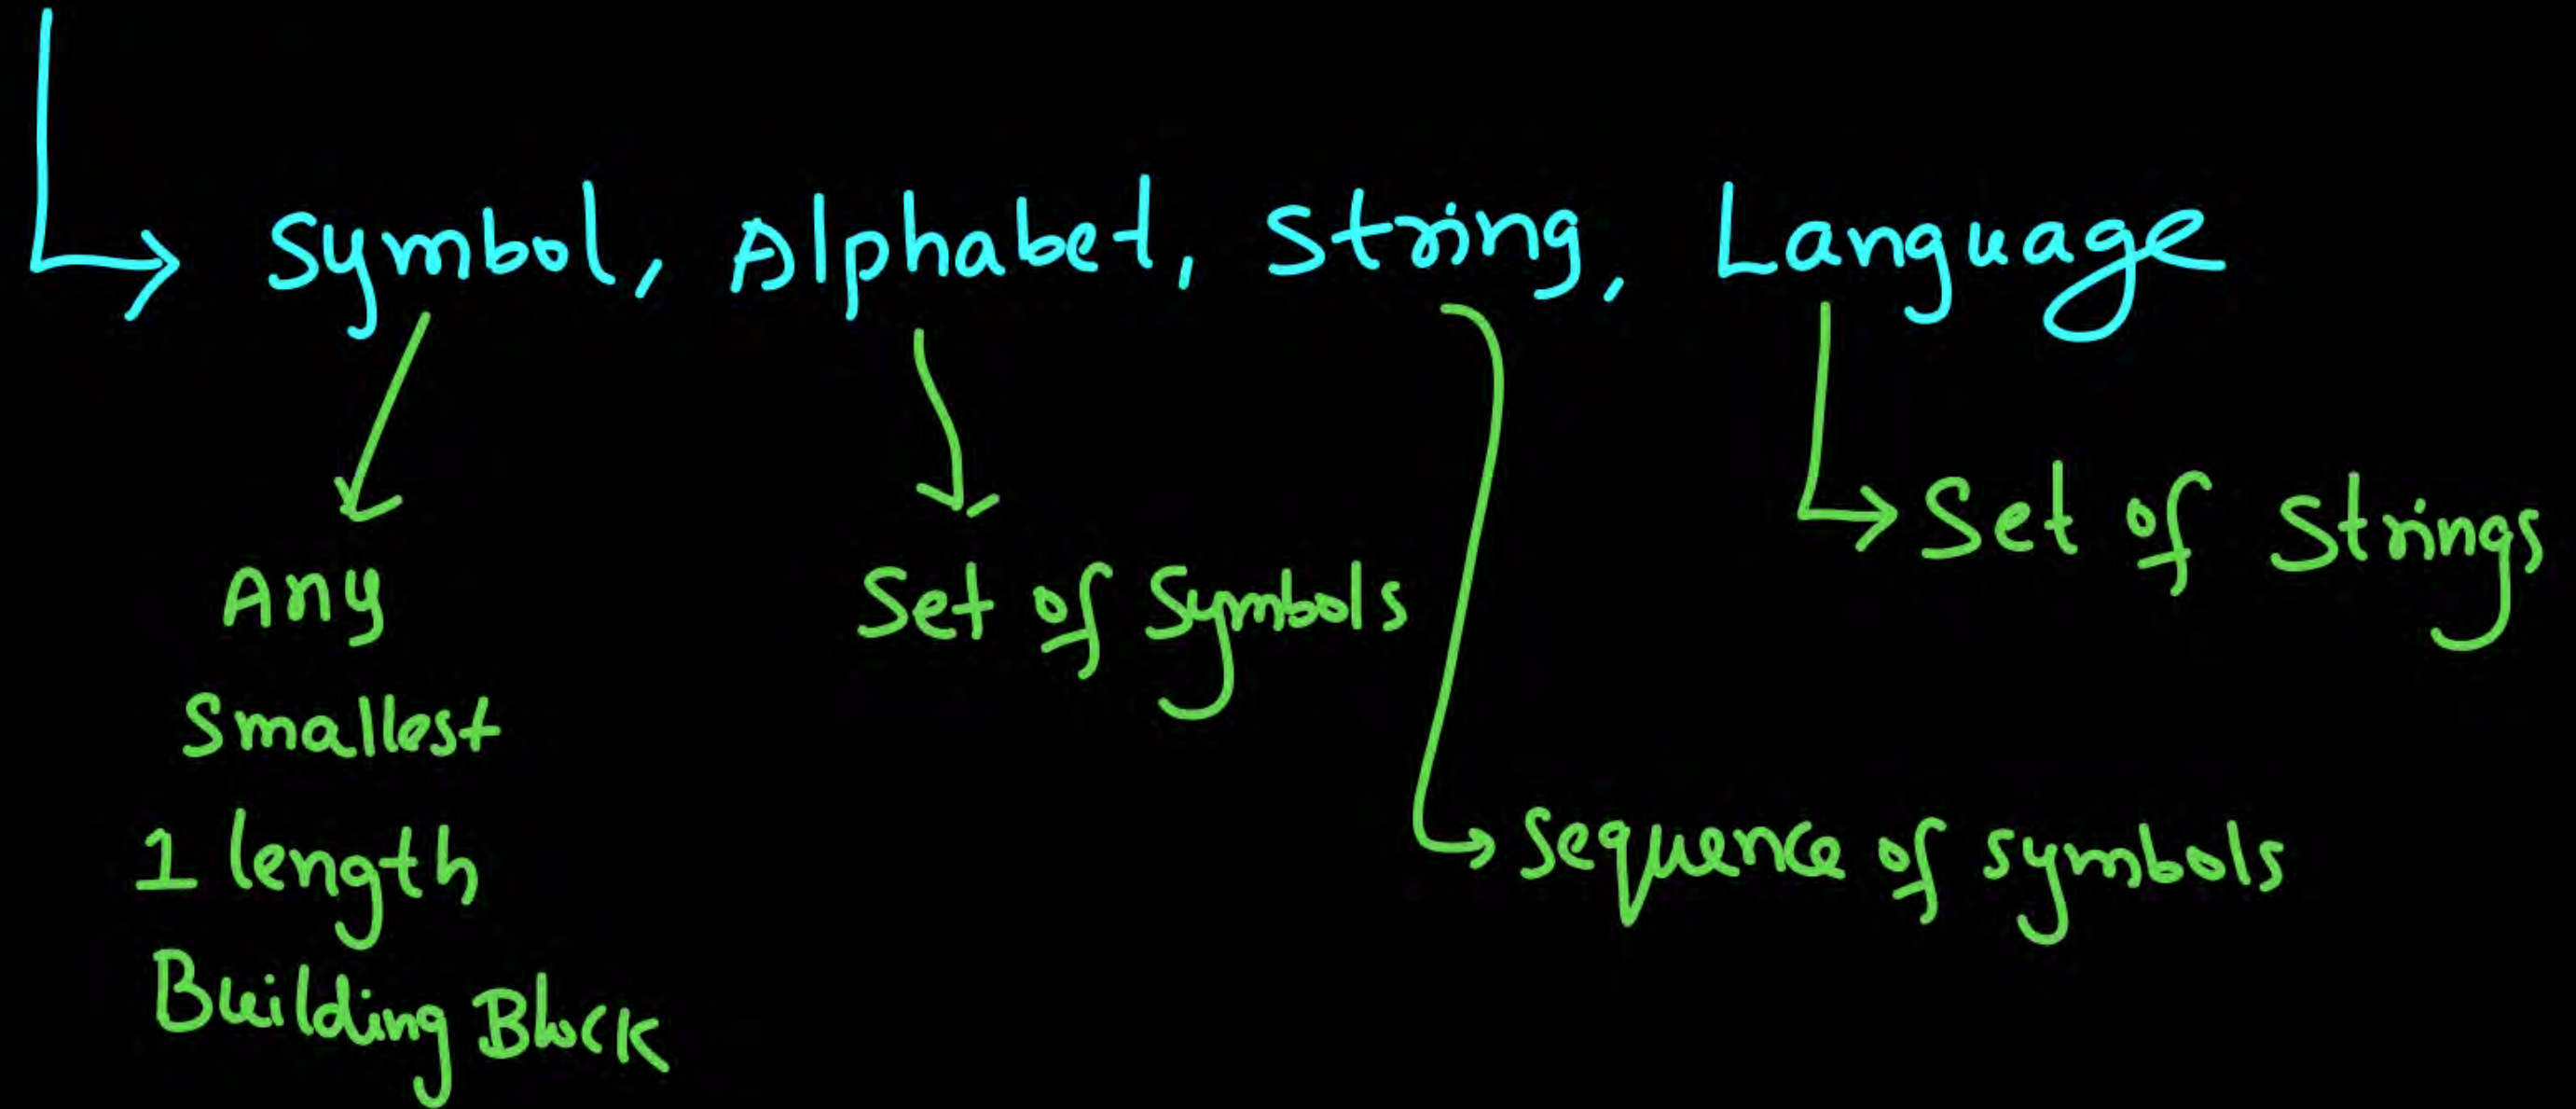 Symbol, Alphabet, String, Language
Any
Smallest
1 length
Building Block
Set of Symbols
Sequence of symbols
Set of Strings